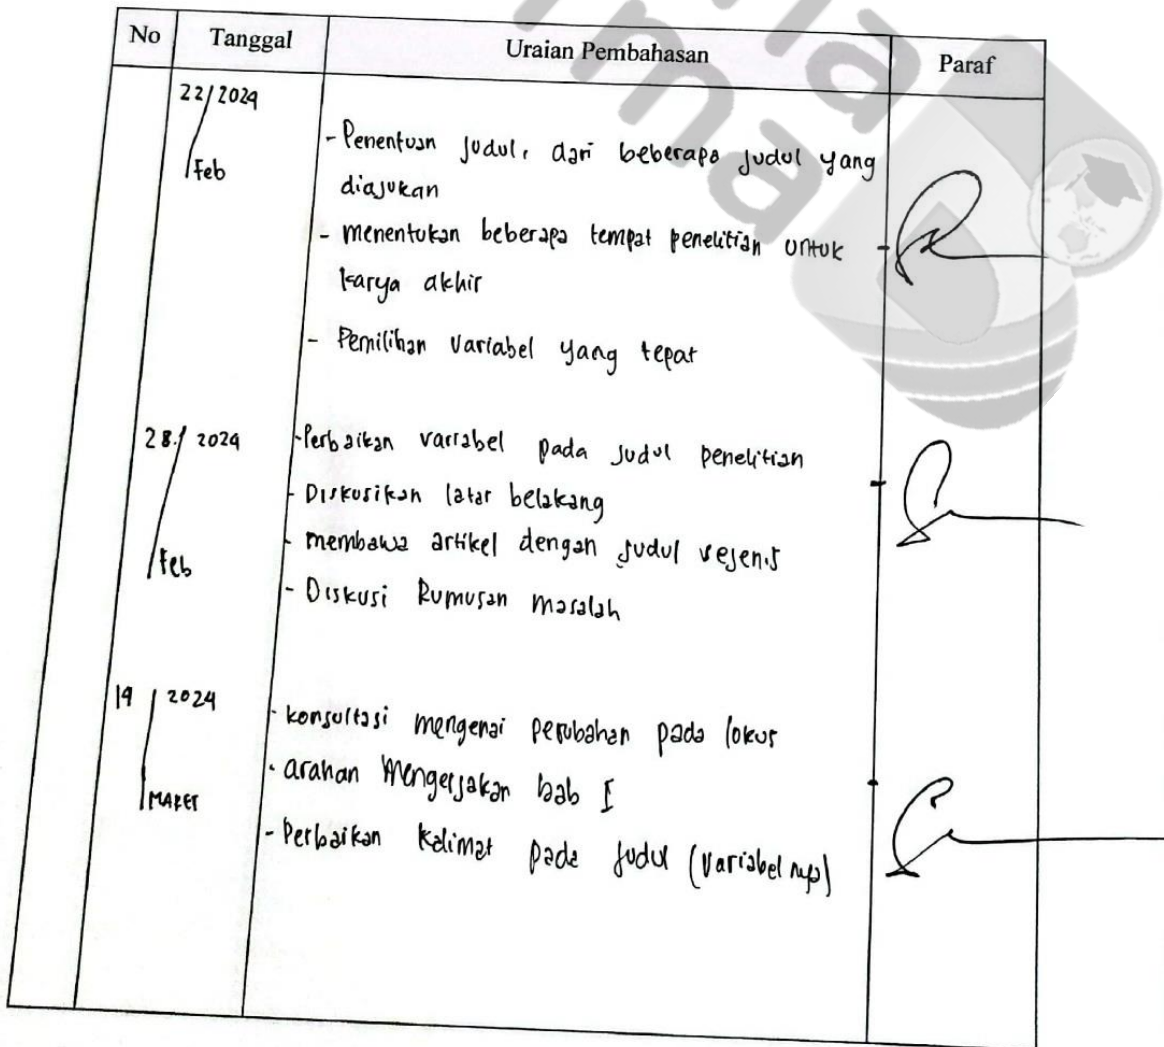 No Tanggal Uraian Pembahasan Paraf
22/2024
Feb
- Penentuan judul, dari beberapa judul yang
diajukan
- menentukan beberapa tempat penelitian untuk
karya akhir
- Pemilihan variabel yang tepat
28/2024
Feb
- Perbaikan variabel pada judul penelitian
- Diskusikan latar belakang
- membawa artikel dengan judul sejenis
- Diskusi Rumusan masalah
19/2024
MARET
- konsultasi mengenai perubahan pada lokus
- arahan mengerjakan bab I
- Perbaikan kalimat pada judul (variabel nya)